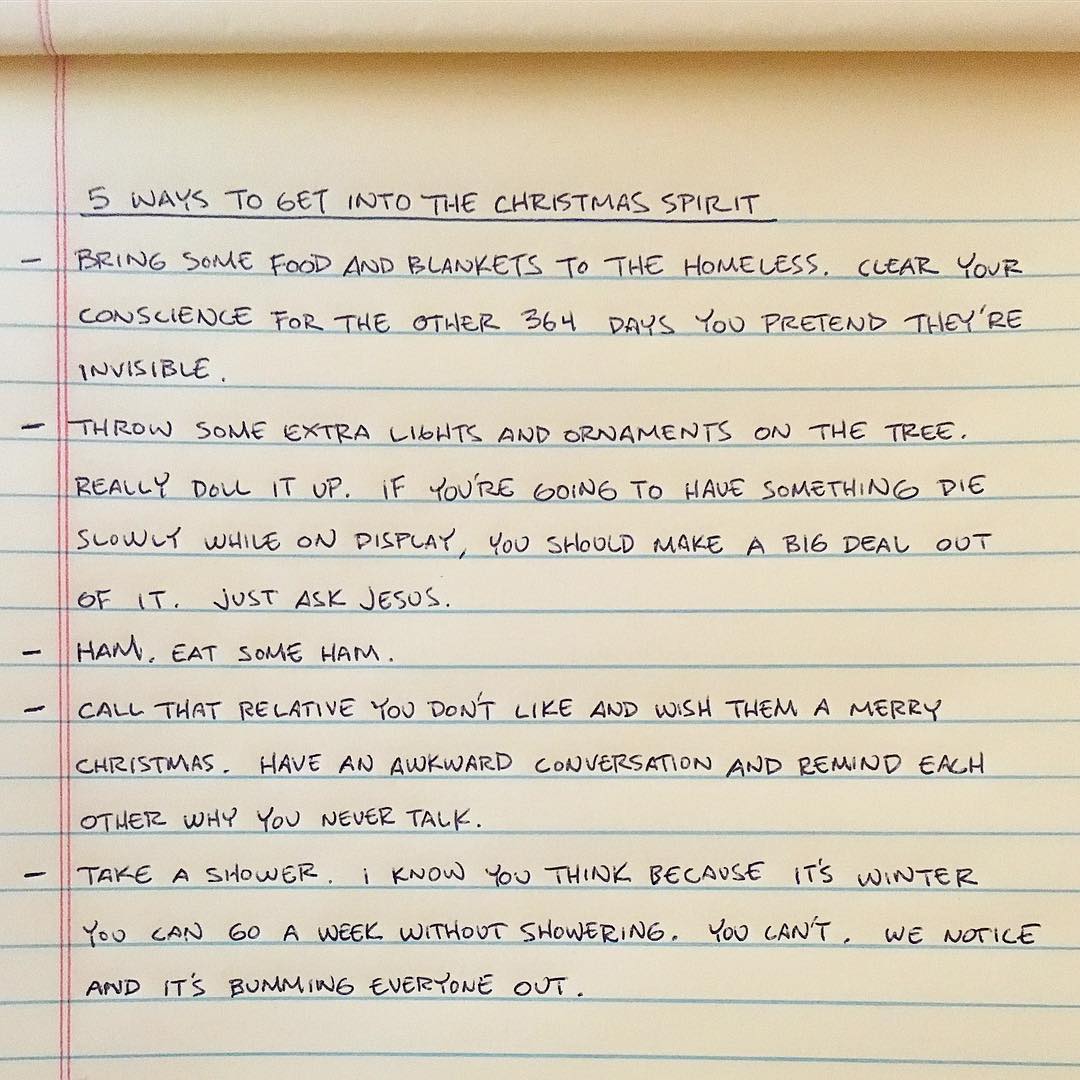 5 WAYS TO GET INTO THE CHRISTMAS SPIRIT
- BRING SOME FOOD AND BLANKETS TO THE HOMELESS. CLEAR YOUR
CONSCIENCE FOR THE OTHER 364 DAYS YOU PRETEND THEY'RE
INVISIBLE.
- THROW SOME EXTRA LIGHTS AND ORNAMENTS ON THE TREE.
REALLY DOLL IT UP. IF YOU'RE GOING TO HAVE SOMETHING DIE
SLOWLY WHILE ON DISPLAY, YOU SHOULD MAKE A BIG DEAL OUT
OF IT. JUST ASK JESUS.
- HAM. EAT SOME HAM.
- CALL THAT RELATIVE YOU DON'T LIKE AND WISH THEM A MERRY
CHRISTMAS. HAVE AN AWKWARD CONVERSATION AND REMIND EACH
OTHER WHY YOU NEVER TALK.
- TAKE A SHOWER. I KNOW YOU THINK BECAUSE IT'S WINTER
YOU CAN GO A WEEK WITHOUT SHOWERING. YOU CAN'T. WE NOTICE
AND IT'S BUMMING EVERYONE OUT.